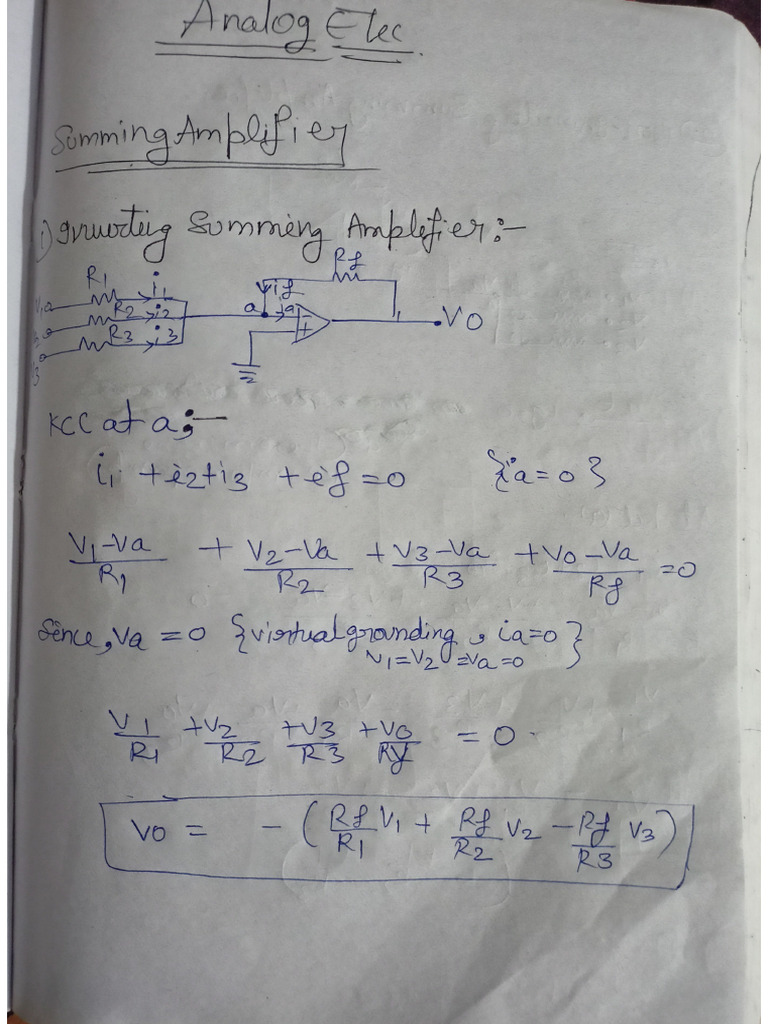 Analog Elec.
Summing Amplifier
1) Inverting Summing Amplifier:-
R1 i1 Rf
if
V1 R2 i2 a ia VO
R3 i3 +
3
KCC at a;-
i1 + i2 + i3 + if = 0 {ia = 0}
V1-Va/R1 + V2-Va/R2 + V3-Va/R3 + Vo-Va/Rf = 0
Since, Va = 0 {virtual grounding, ia=0
V1=V2=Va=0}
V1/R1 + V2/R2 + V3/R3 + Vo/Rf = 0
VO = - (Rf/R1 V1 + Rf/R2 V2 - Rf/R3 V3)